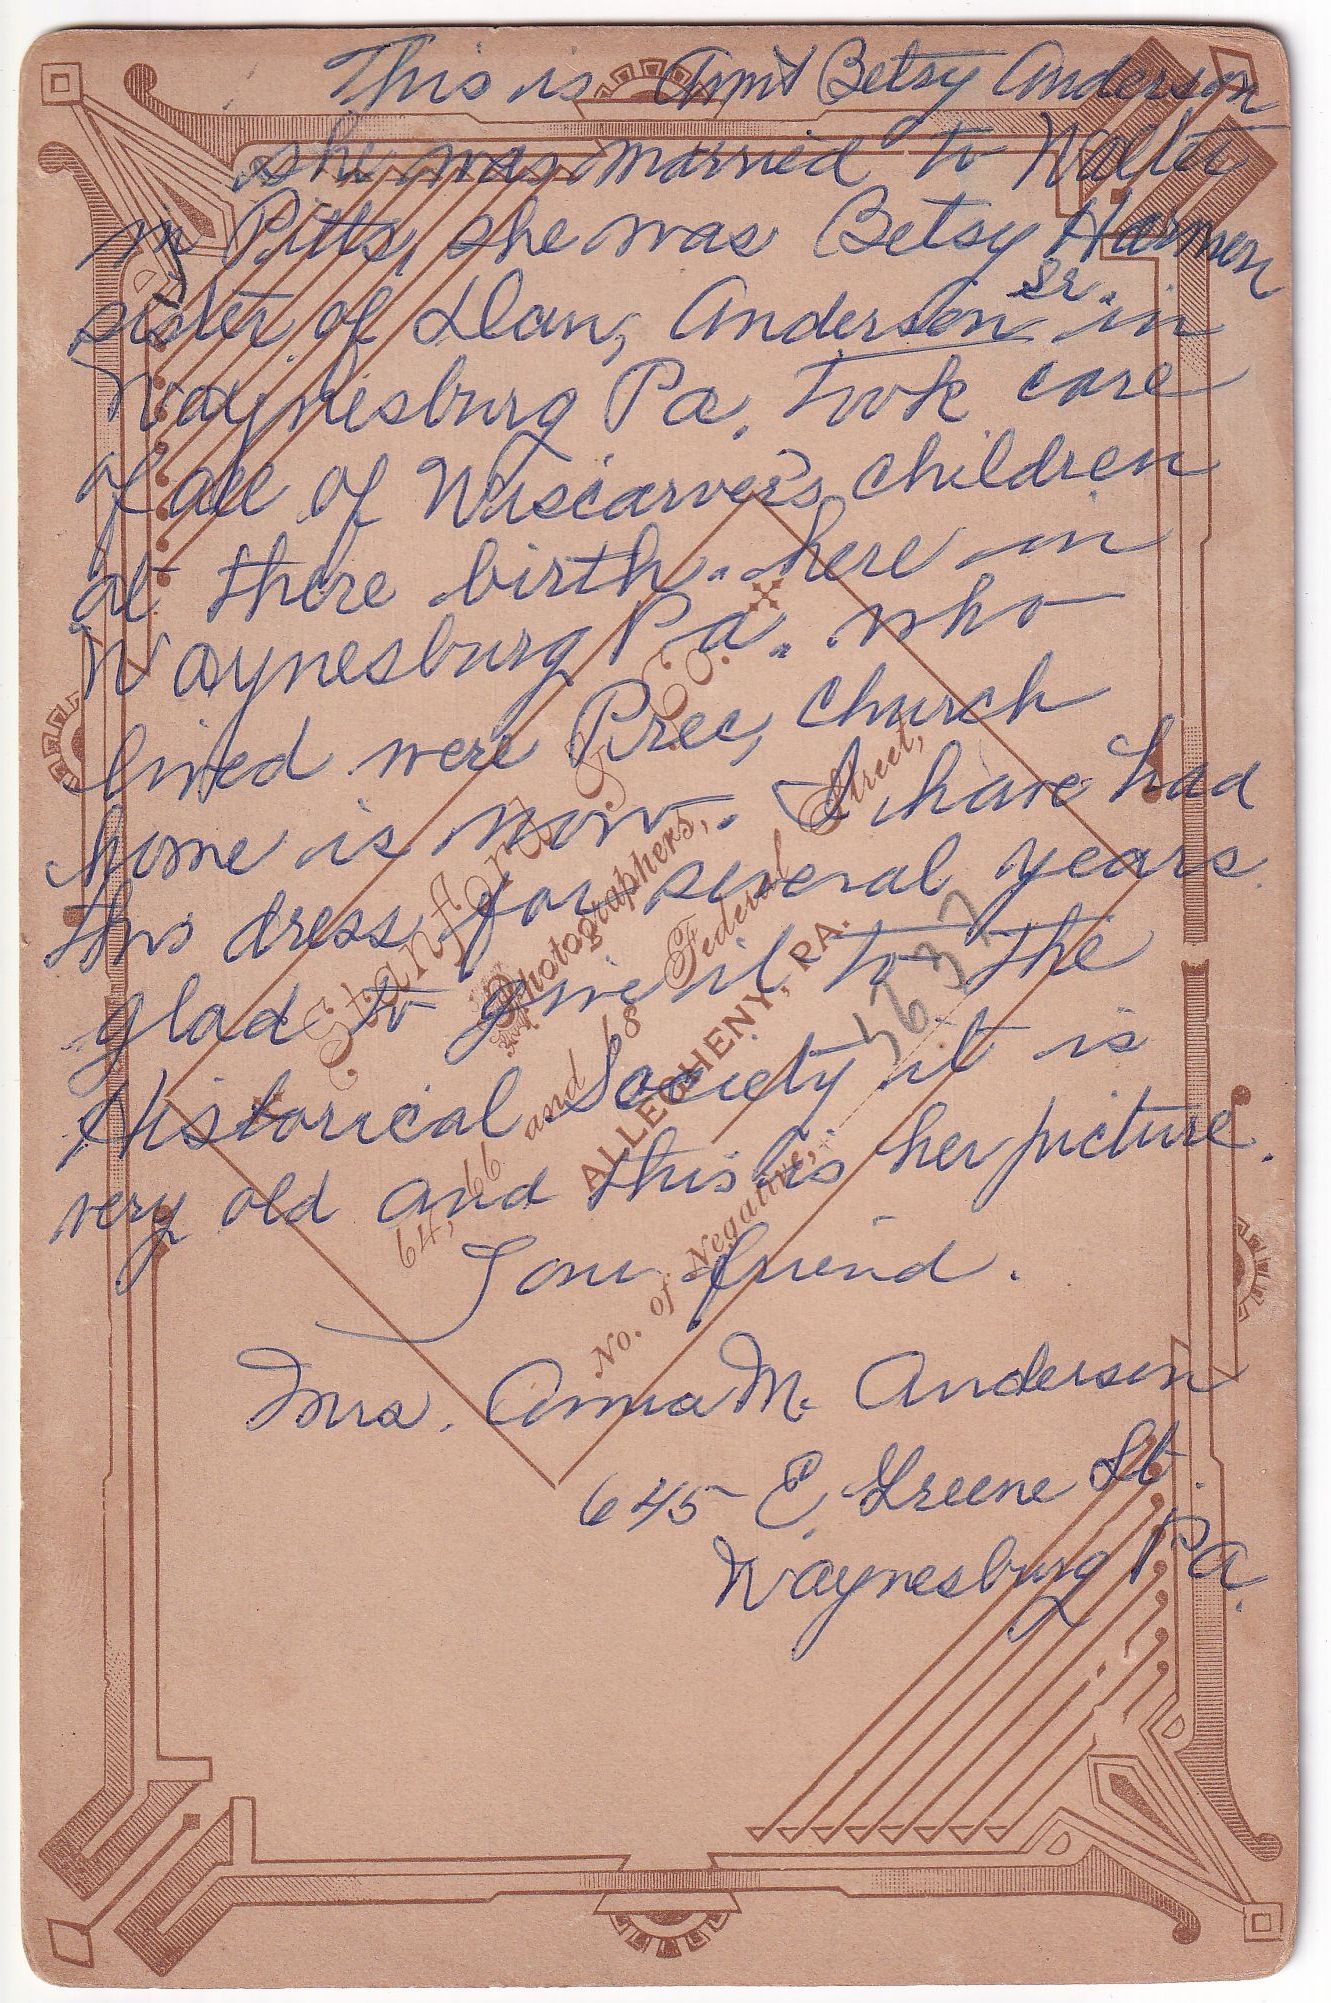 This is Aunt Betsy Anderson
she was married to Walter
in Pitts, she was Betsy Harmon
sister of Dan, Anderson Sr. in
Waynesburg Pa. took care
of all of Wiscarver's children
at there birth. here in
Waynesburg Pa. who
lived were Pree, church
home is now. I have had
this dress for several years.
glad to give it to the
Historical Society it is
very old and this is her picture.
Your friend.
Mrs. Anna M. Anderson
645 E. Greene St.
Waynesburg Pa.
Stanford & Co.
Photographers,
64, 66 and 68 Federal Street,
ALLEGHENY, PA.
No. of Negative,